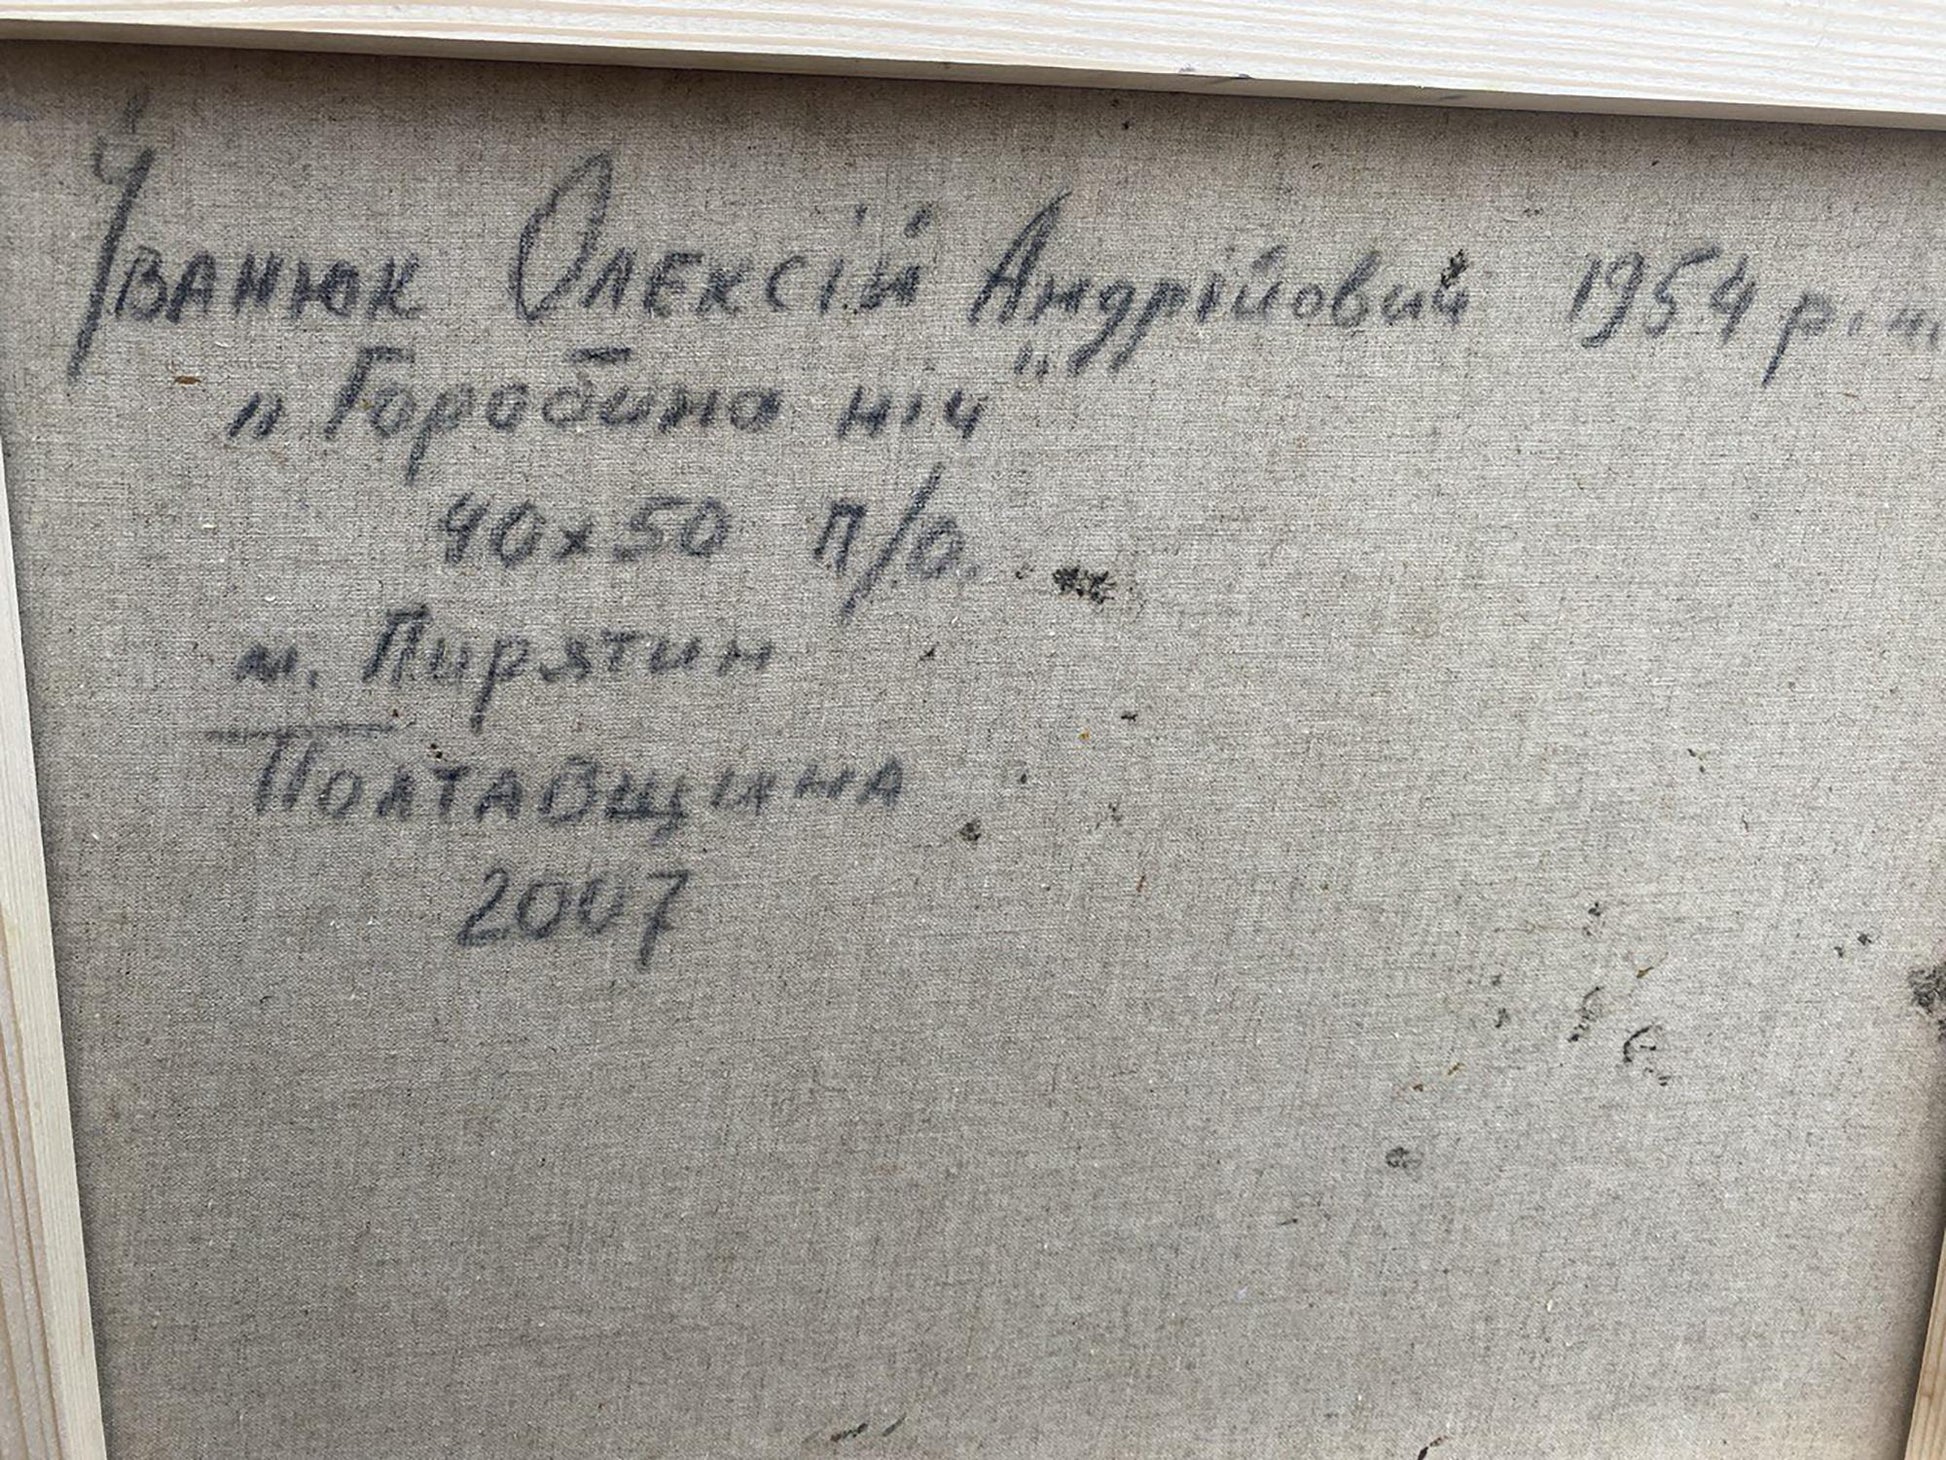 Іванюк Олексій Андрійович 1954 р.н.
„Горобина ніч"
40х50 п/о.
м. Пирятин
Полтавщина
2007